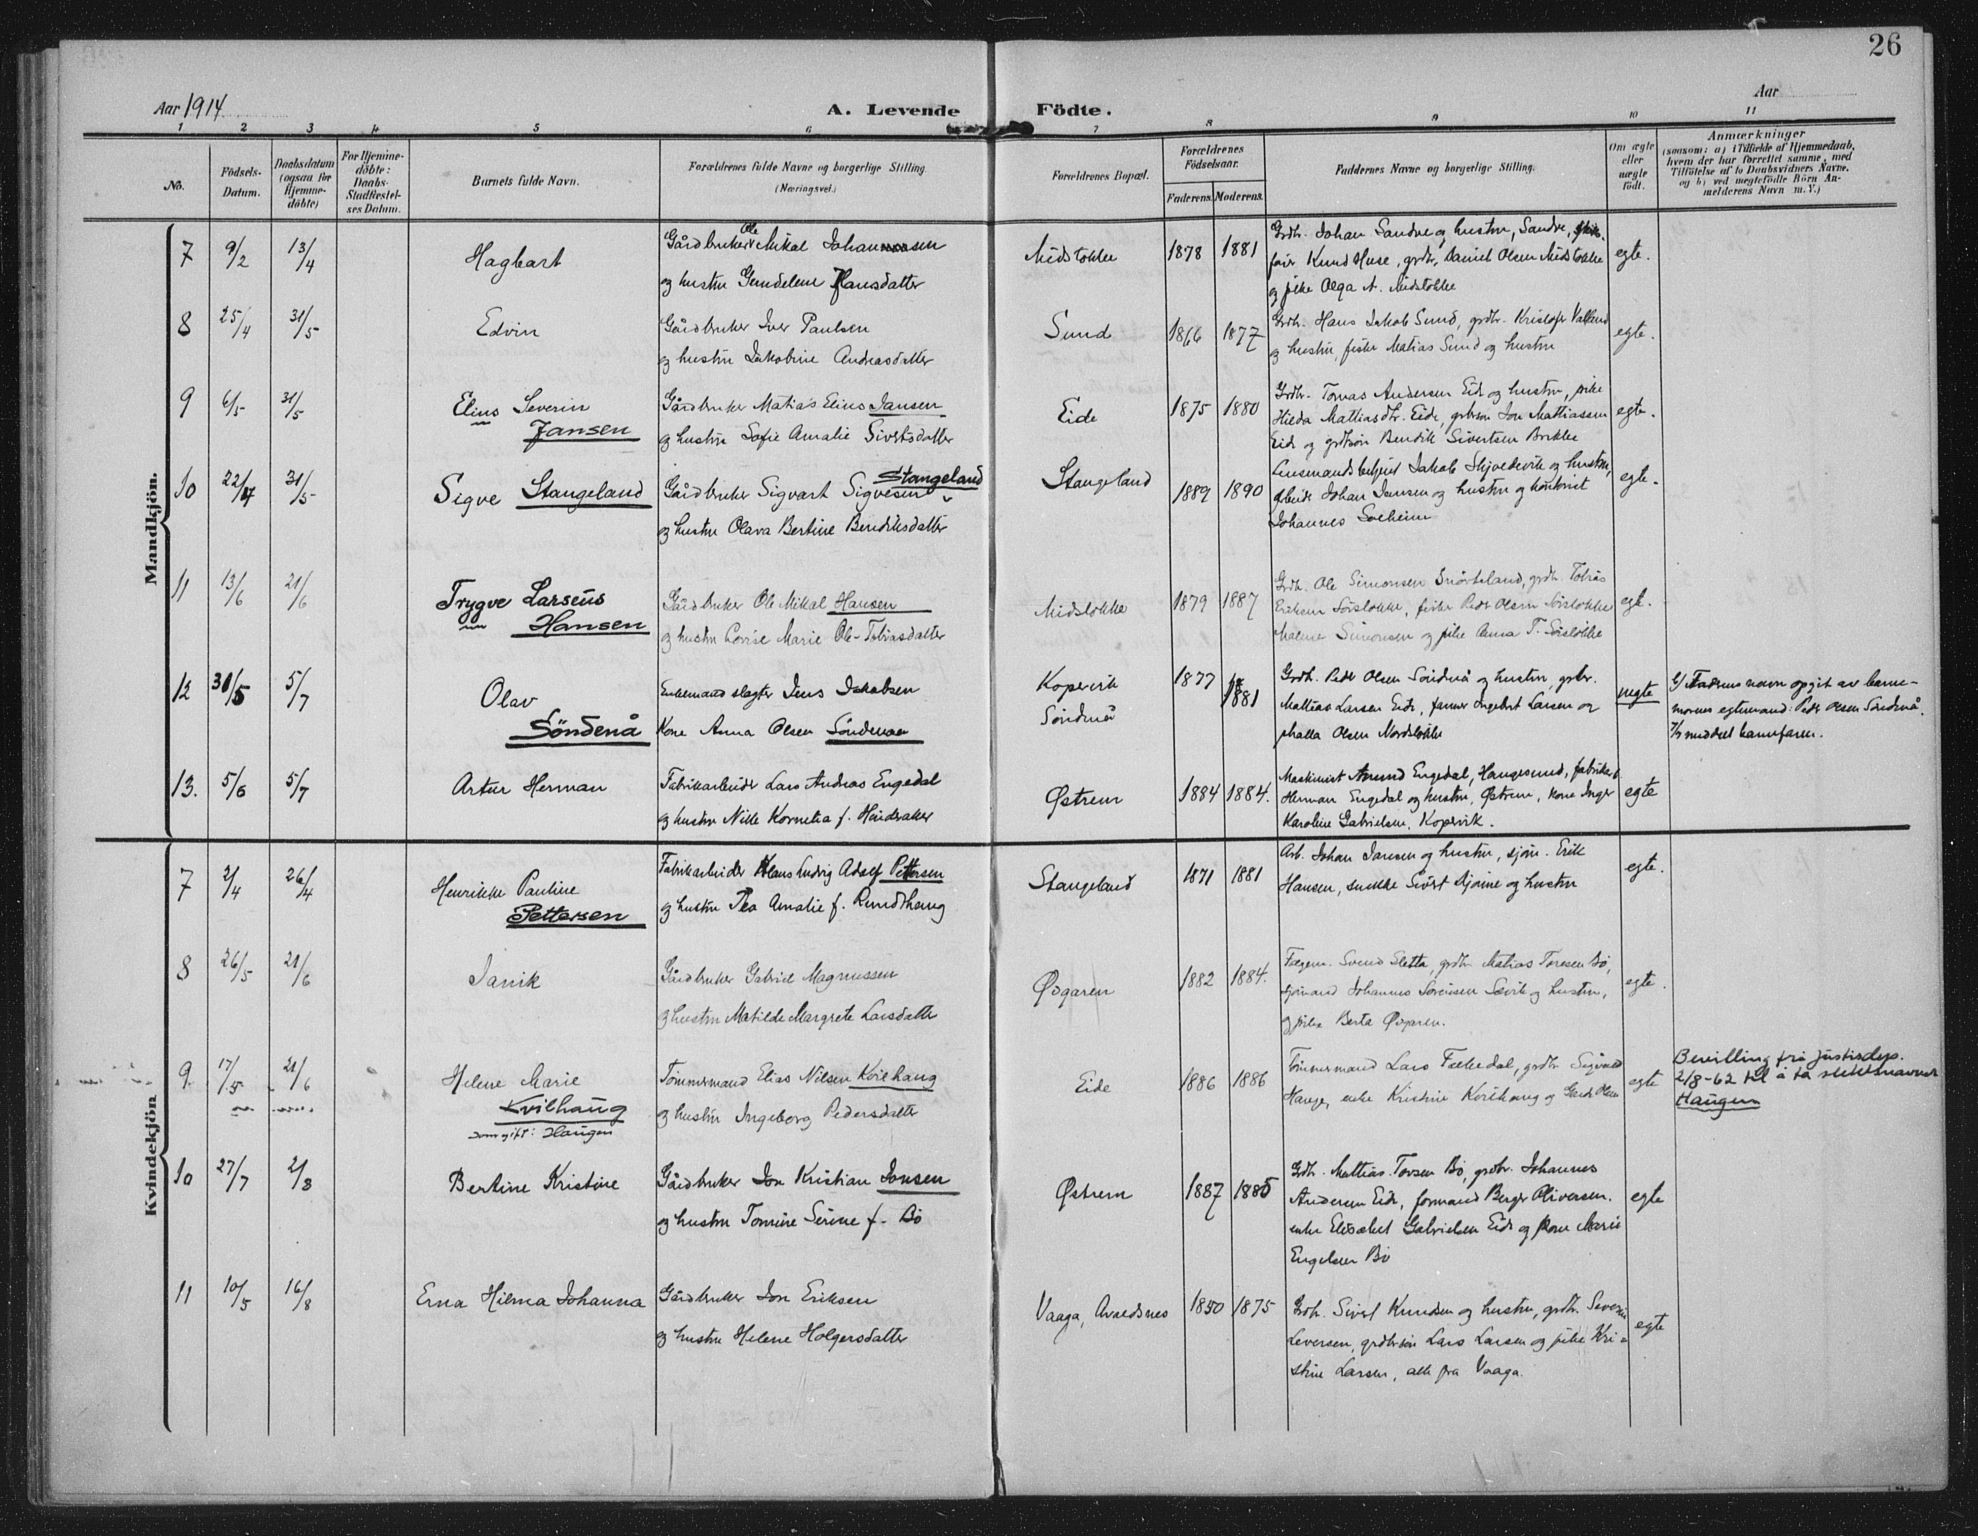 26
Aar 1914
A. Levende Födte.
Aar
1 2 3 4 5 6 7 8 9 10 11
No.
Födsels-Datum.
Daabsdatum (ogsaa for Hjemme-döbte)
For Hjemme-döbte: Daabs-Stadfæstel-ses Datum.
Barnets fulde Navn.
Forældrenes fulde Navne og borgerlige Stilling (Næringsvei.)
Forældrenes Bopæl.
Forældrenes Födselsaar.
Faderens. Moderens.
Faddernes Navne og borgerlige Stilling.
Om ægte eller uægte födt.
Anmærkninger
(saasom: a) i Tilfælde af Hjemmedaab,
hvem der har forrettet samme, med
Tilföielse af to Daabsvidners Navne.
og b) ved uægtefödte Börn An-
melderens Navn m. V.)
Mandkjön.
7 9/2 13/4 Hagbart
Gårdbruker Ole Mikal Johannessen
og hustru Gundelene Hansdatter
Midstokke 1878 1881
Grdbr. Johan Sandve og hustru, Sandve,
Knud Huse, grdbr. Daniel Olsen Midstokke
og pike Olga A. Midstokke
egte.
8 25/4 31/5 Edvin
Gårdbruker Iver Paulsen
og hustru Jakobine Andreasdatter
Sund 1866 1877
Grdbr. Hans Jakob Sund, grdbr. Kristofer
og hustru, fisker Matias Sund og hustru
egte.
9 6/5 31/5 Elius Severin
Jansen
Gårdbruker Matias Elius Jansen
og hustru Sofie Amalie Sivertsdatter
Eide 1875 1880
Grdbr. Tomas Andersen Eide og hustru, pike
Hilda Mattiasdtr. Eide, grbrsøn Jon Mattiassen
Eide og grdbrsøn Bendik Sivertsen
egte.
10 22/4 31/5 Sigve Stangeland
Gårdbruker Sigvart Sigvesen Stangeland
og hustru Olava Bertine Bendiksdatter
Stangeland 1889 1890
Lensmandsbetjent Jakob Skjoldevik og hustru,
Arbeider Johan Jansen og hustru og kontorist
Johannes Solheim
egte.
11 13/6 21/6 Trygve Larsenus
Hansen
Gårdbruker Ole Mikal Hansen
og hustru Lovise Marie Ole-Tobiasdatter
Midstokke 1879 1887
Grdbr. Ole Simonsen Snörteland, grdbr. Tobias
Eriksen Sørstokke, fisker Peder Olsen Sørstokke
Malene Simonsen og pike Anna T. Sørstokke
egte.
12 30/5 5/7 Olav
Söndenå
Enkemand slagter Jens Jakobsen
Kone Anna Olsen Söndenaa
Kopervik
Söndenå
1877 1881
Grdbr. Peder Olsen Söndenå og hustru, grbr.
Mattias Larsen Eide, frøken Ingebort Larsen og
Olsen Nordstokke
uegte
Fadrens navn opgit av barne-
morens egtemand: Peder Olsen Söndenå.
meddelt barnefaren.
13. 5/6 5/7 Artur Herman
Fabrikarbeider Lars Andreas Engedal
og hustru Nille Kornelia f. Hindraker
Østrem 1884 1884.
Maskinist Amund Engedal, Haugesund, fabrikarb.
Herman Engedal og hustru, Østrem, kone Inger
Karoline Gabrielsen, Kopervik.
egte
Kvindekjön
7 2/4 26/4 Henrikke Pauline
Pettersen
Fabrikarbeider Klaus Ludvig Adolf Pettersen
og hustru Tea Amalie f. Rundhaug
Stangeland 1871 1881
Arb. Johan Jansen og hustru, sjøm. Erik
Hansen, snekker Sivert Stjerne og hustru
egte.
8 26/5 21/6 Janik
Gårdbruker Gabriel Magnussen
og hustru Matilde Margrete Larsdatter
Øvgaren 1882 1884.
Svend Sletta, grdbr. Matias Toresen Bø,
sjömand Johannes Sörensen Sævik og hustru,
og pike Berta Øvgaren.
egte.
9 17/5 21/6 Helene Marie
Kvilhaug
som gift: Haugen
Tömmermand Elias Nilsen Kvilhaug
og hustru Ingeborg Pedersdatter
Eide 1886 1886
Tömmermand Lars Falkedal, grdbr. Sigvald
Hauge, enke Kristine Kvilhaug og Olsen
egte
Bevilling fra Justisdep.
2/8-62 til å ta slektsnavnet
Haugen
10 27/7 2/8 Bertine Kristine
Gårdbruker Jon Kristian Jonsen
og hustru Tomine Serine f. Bö
Østrem 1887 1885
Grdbr. Mattias Torsen Bø, grdbr. Johannes
Andersen Eide, formand Berger Oliversen,
enke Elisabet Gabrielsen Eide og kone Marie
Engelsen Bø
egte
11 10/5 16/8 Erna Hilma Johanna
Gårdbruker Jon Eriksen
og hustru Helene Holgersdatter
Vaaga, Avaldsnes 1850 1875
Grdbr. Sivert Knudsen og hustru, grdbr. Severin
Seversen, grdbrsön Lars Larsen og pike Kri-
stine Larsen, alle fra Vaaga.
egte